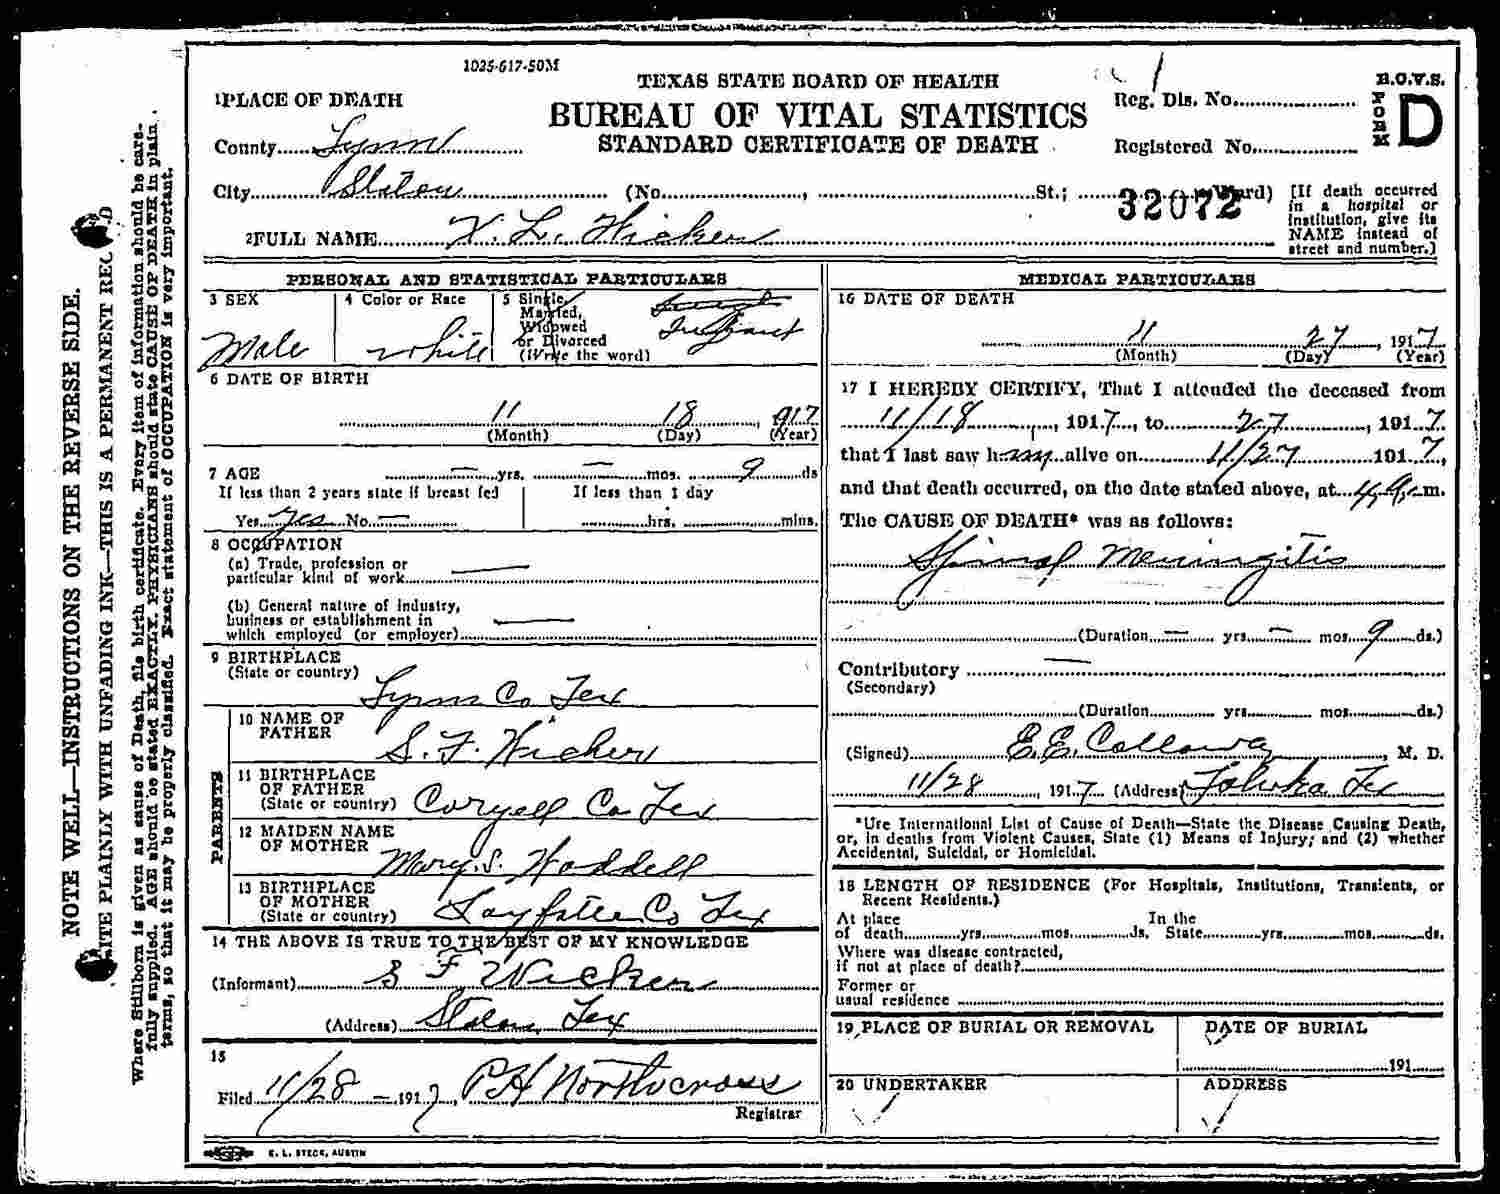 1025-617-50M
TEXAS STATE BOARD OF HEALTH
BUREAU OF VITAL STATISTICS
STANDARD CERTIFICATE OF DEATH
Reg. Dis. No.
Registered No.
B.O.V.S.
FORM D
1 PLACE OF DEATH
County Lynn
City Slaton (No. , St.; Ward)
32072
[If death occurred
in a hospital or
institution, give its
NAME instead of
street and number.)
2 FULL NAME L. Wicker
PERSONAL AND STATISTICAL PARTICULARS
3 SEX
Male
4 Color or Race
White
5 Single,
Married,
Widowed
or Divorced
(Write the word)
Infant
6 DATE OF BIRTH
11 18, 1917
(Month) (Day) (Year)
7 AGE — yrs. — mos. 9 ds
If less than 2 years state if breast fed
Yes yes No —
If less than 1 day
hrs. mins.
8 OCCUPATION
(a) Trade, profession or
particular kind of work —
(b) General nature of industry,
business or establishment in
which employed (or employer) —
9 BIRTHPLACE
(State or country)
Lynn Co Tex
PARENTS
10 NAME OF
FATHER
S. F. Wicker
11 BIRTHPLACE
OF FATHER
(State or country)
Coryell Co Tex
12 MAIDEN NAME
OF MOTHER
Mary. S. Hoddell
13 BIRTHPLACE
OF MOTHER
(State or country)
Layfatte Co Tex
14 THE ABOVE IS TRUE TO THE BEST OF MY KNOWLEDGE
(Informant) S F Wicker
(Address) Slaton, Tex
15
Filed 11/28 - 1917, P H Northcross
Registrar
E. L. STECK, AUSTIN
MEDICAL PARTICULARS
16 DATE OF DEATH
11 27, 1917
(Month) (Day) (Year)
17 I HEREBY CERTIFY, That I attended the deceased from
11/18, 1917, to 27, 1917
that I last saw him alive on 11/27 1917,
and that death occurred, on the date stated above, at 4 a. m.
The CAUSE OF DEATH* was as follows:
Spinal Meningitis
(Duration — yrs — mos 9 ds.)
Contributory —
(Secondary)
(Duration yrs mos ds.)
(Signed) E. E. Calloway, M. D.
11/28, 1917 (Address) Tahoka Tex
*Use International List of Cause of Death—State the Disease Causing Death,
or, in deaths from Violent Causes, State (1) Means of Injury; and (2) whether
Accidental, Suicidal, or Homicidal.
18 LENGTH OF RESIDENCE (For Hospitals, Institutions, Transients, or
Recent Residents.)
At place
of death yrs. mos. ds.
In the
State yrs. mos. ds.
Where was disease contracted,
if not at place of death?
Former or
usual residence
19 PLACE OF BURIAL OR REMOVAL
DATE OF BURIAL
191
20 UNDERTAKER
ADDRESS
NOTE WELL—INSTRUCTIONS ON THE REVERSE SIDE.
ITE PLAINLY WITH UNFADING INK—THIS IS A PERMANENT REC D
Where Stillborn is given as cause of Death, file birth certificate. Every item of information should be care-
fully supplied. AGE should be stated EXACTLY. PHYSICIANS should state CAUSE OF DEATH in plain
terms, so that it may be properly classified. Exact statement of OCCUPATION is very important.